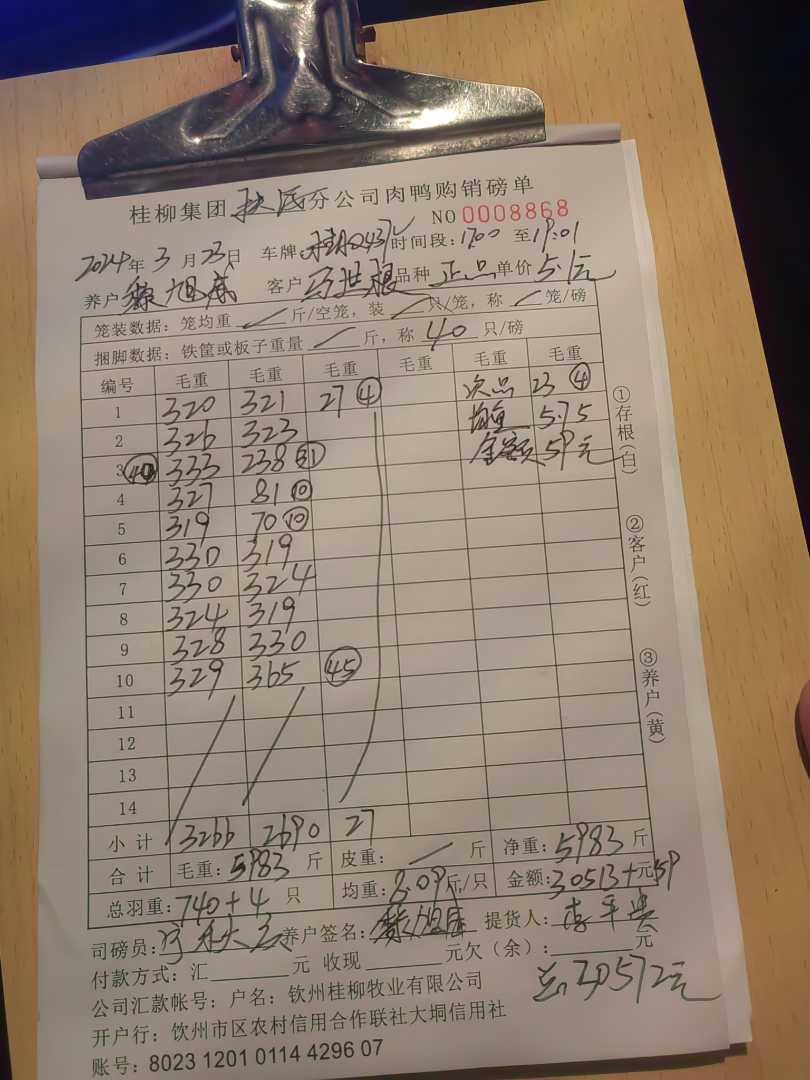 桂柳集团 分公司肉鸭购销磅单
NO 0008868
2024年3月23日 车牌: 时间段:1700 至19:01
养户 旭 客户 世根 品种 正品 单价 5.1元
笼装数据: 笼均重 / 斤/空笼, 装 / 只/笼, 称 / 笼/磅
捆脚数据: 铁筐或板子重量 / 斤, 称 40 只/磅
编号 毛重 毛重 毛重 毛重 毛重 毛重
1 320 321 27 ④ 次品 23 ④
2 326 323 均重 5.75
3 ㊵ 333 238 ㉛ 金额 59元
4 327 81 ⑩
5 319 70 ⑩
6 330 319
7 330 324
8 324 319
9 328 330
10 329 365 ㊺
11
12
13
14
小计 3266 2690 27
合计 毛重: 5983 斤 皮重: / 斤 净重: 5983 斤
总羽重: 740+4 只 均重: 8.09 斤/只 金额: 30513+元59
司磅员: 养户签名: 旭 提货人: 李平
付款方式: 汇 元 收现 元欠(余): 元
总30572元
公司汇款帐号: 户名: 钦州桂柳牧业有限公司
开户行: 钦州市区农村信用合作联社大垌信用社
账号: 8023 1201 0114 4296 07
①存根(白)
②客户(红)
③养户(黄)